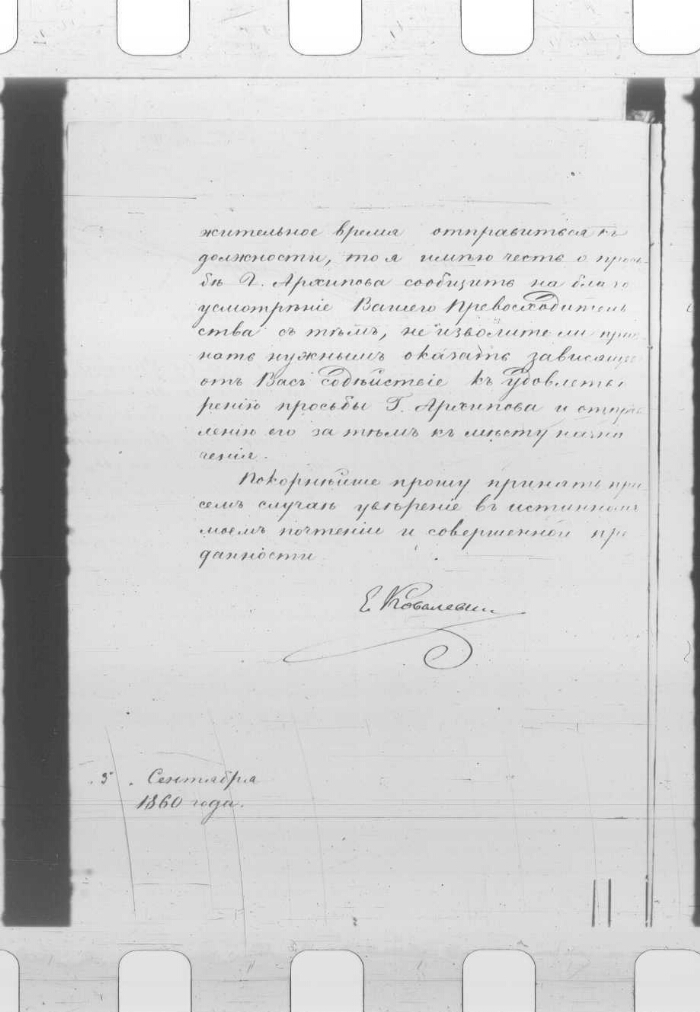 жительное время отправиться къ
должности, то я имѣю честь о прось
бѣ Г. Архипова сообщить на благо
усмотрѣніе Вашего Превосходитель
ства съ тѣмъ, не изволите ли приз
нать нужнымъ оказать зависящее
отъ Васъ содѣйствіе къ удовлетво
ренію просьбы Г. Архипова и отпра
вленію его за тѣмъ къ мѣсту назна
ченія.
Покорнѣйше прошу принять при
семъ случаѣ увѣреніе въ истинномъ
моемъ почтеніи и совершенной пре
данности
Е. Ковалевскій
5. Сентября
1860 года.